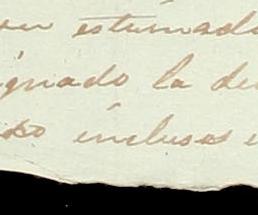 estimado
gnado la de
do inclusas